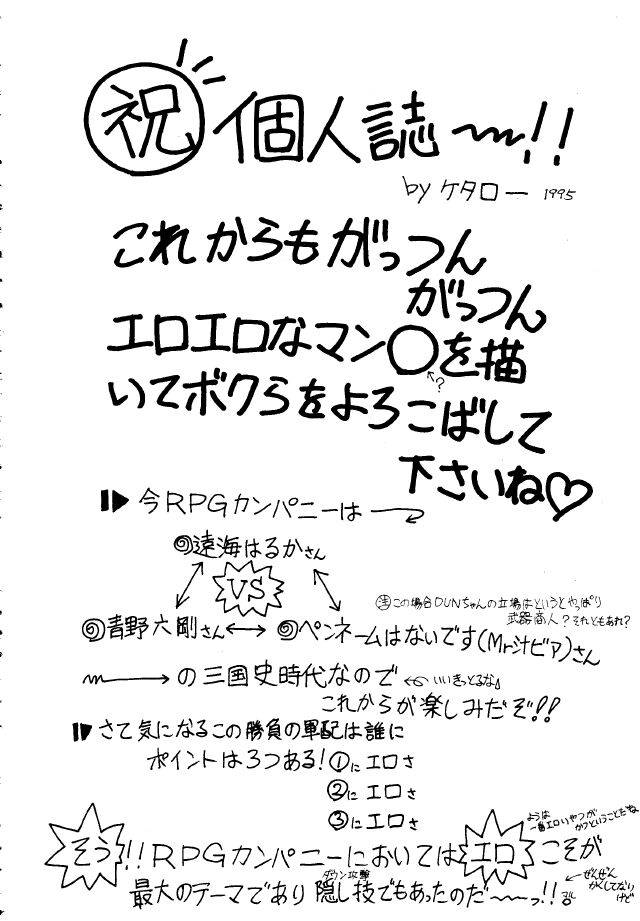 祝 個人誌〜!!
by ケタロー 1995
これからもがっつん
がっつん
エロエロなマン○を描
?
いてボクらをよろこばして
下さいね♡
今RPGカンパニーは
遠海はるかさん
VS
注 この場合DUNちゃんの立場はというとやっぱり
武器商人？それともあれ？
青野六剛さん ↔ ペンネームはないです(Mr汁ビア)さん
→の三国史時代なので ← いいきっとるな
これからが楽しみだぞ!!
さて気になるこの勝負の軍配は誰に
ポイントは3つある! ①にエロさ
②にエロさ
③にエロさ
ようは
一番エロいやつが
かつということだね
そう!!RPGカンパニーにおいてはエロこそが
ダウン攻撃
最大のテーマであり隠し技でもあったのだ〜っ!!
←ぜんぜん
かくしてない
けど